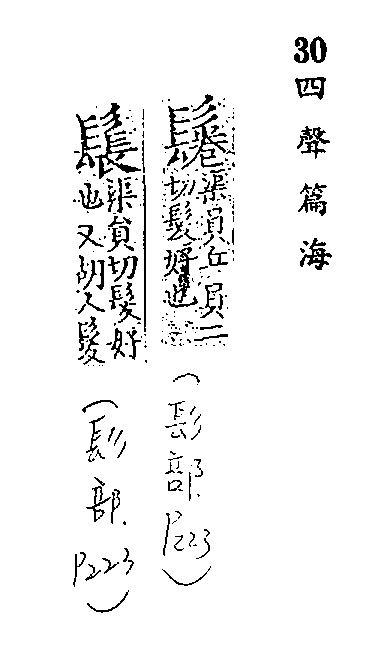 30
四聲篇海
鬈
渠員丘員二
切髮好也
(髟部.P223)
渠貟切髮好
也又胡人髮
(髟部.P223)